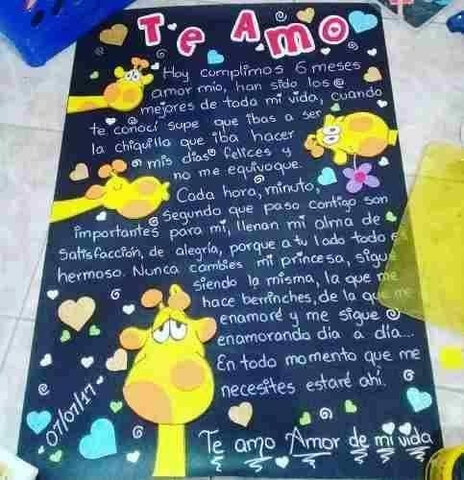 Te Amo
Hoy cumplimos 6 meses
amor mio, han sido los
mejores de toda mi vida, cuando
te conocí supe que ibas a ser
la chiquilla que iba hacer
mis días felices y
no me equivoque.
Cada hora, minuto,
segundo que paso contigo son
importantes para mi, llenan mi alma de
satisfacción, de alegría, porque a tu lado todo es
hermoso. Nunca cambies mi princesa, sigue
siendo la misma, la que me
hace berrinches, de la que me
enamoré y me sigue
enamorando día a día...
En todo momento que me
necesites estaré ahí.
07/07/17
Te amo Amor de mi vida